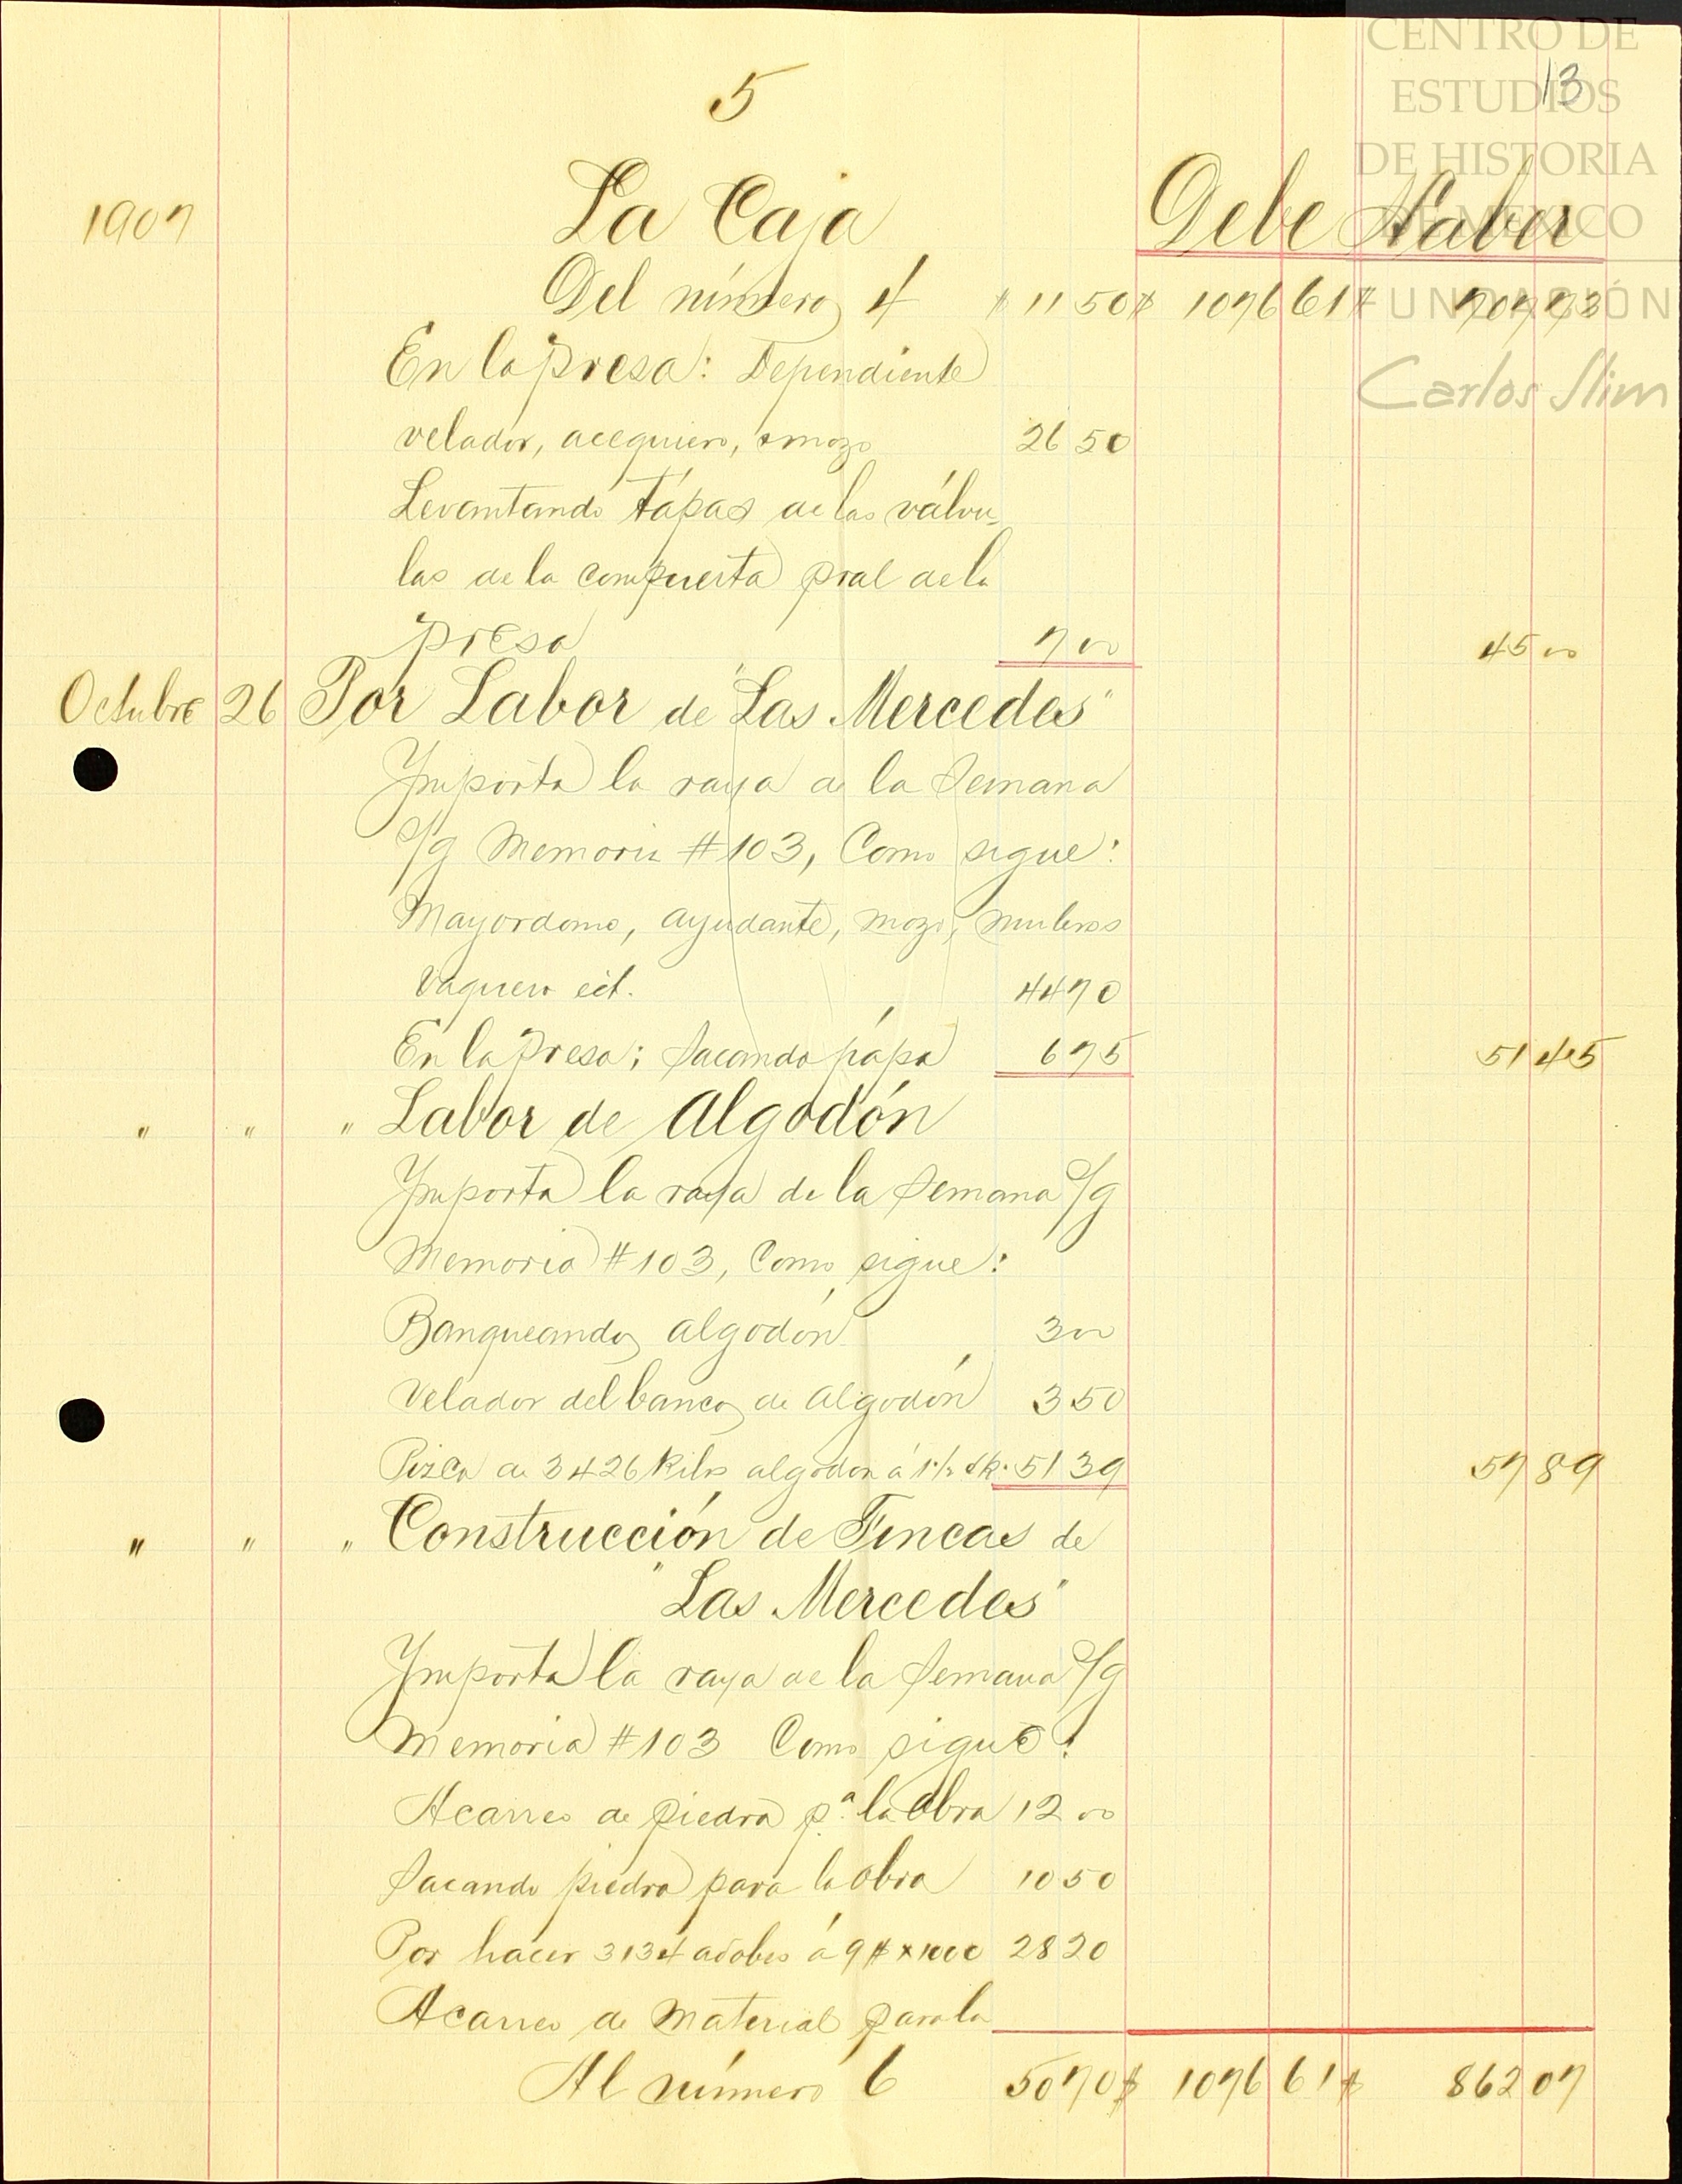 CENTRO DE
ESTUDIOS
DE HISTORIA
DE MEXICO
FUNDACIÓN
Carlos Slim
13
5
1907 La Caja Debe Haber
Del número 4 $ 11 50 $ 1076 61 $ 707 73
En la Presa: Dependiente
velador, acequiero, mozo 26 50
Levantando tápas de las válvu-
las de la compuerta pral de la
presa 7 00 45 00
Octubre 26 Por Labor de "Las Mercedes"
Importa la raya de la Semana
s/g Memoria #103, Como sigue:
Mayordomo, ayudante, mozo, muleros
vaquero ect. 44 70
En la Presa; Sacando pápa 6 75 51 45
" " " Labor de Algodón
Importa la raya de la Semana s/g
Memoria #103, Como sigue:
Banqueando algodón 3 00
Velador del banco de algodón 3 50
Pizca de 3426 Kilos algodon á 1 1/2 ¢k. 51 39 57 89
" " " Construcción de Fincas de
"Las Mercedes"
Importa la raya de la Semana s/g
Memoria #103 Como sigue:
Acarreo de piedra pª la obra 12 00
Sacando piedra para la obra 10 50
Por hacer 3134 adobes á 9 $ x 1000 28 20
Acarreo de material para la
Al número 6 50 70 $ 1076 61 $ 862 07